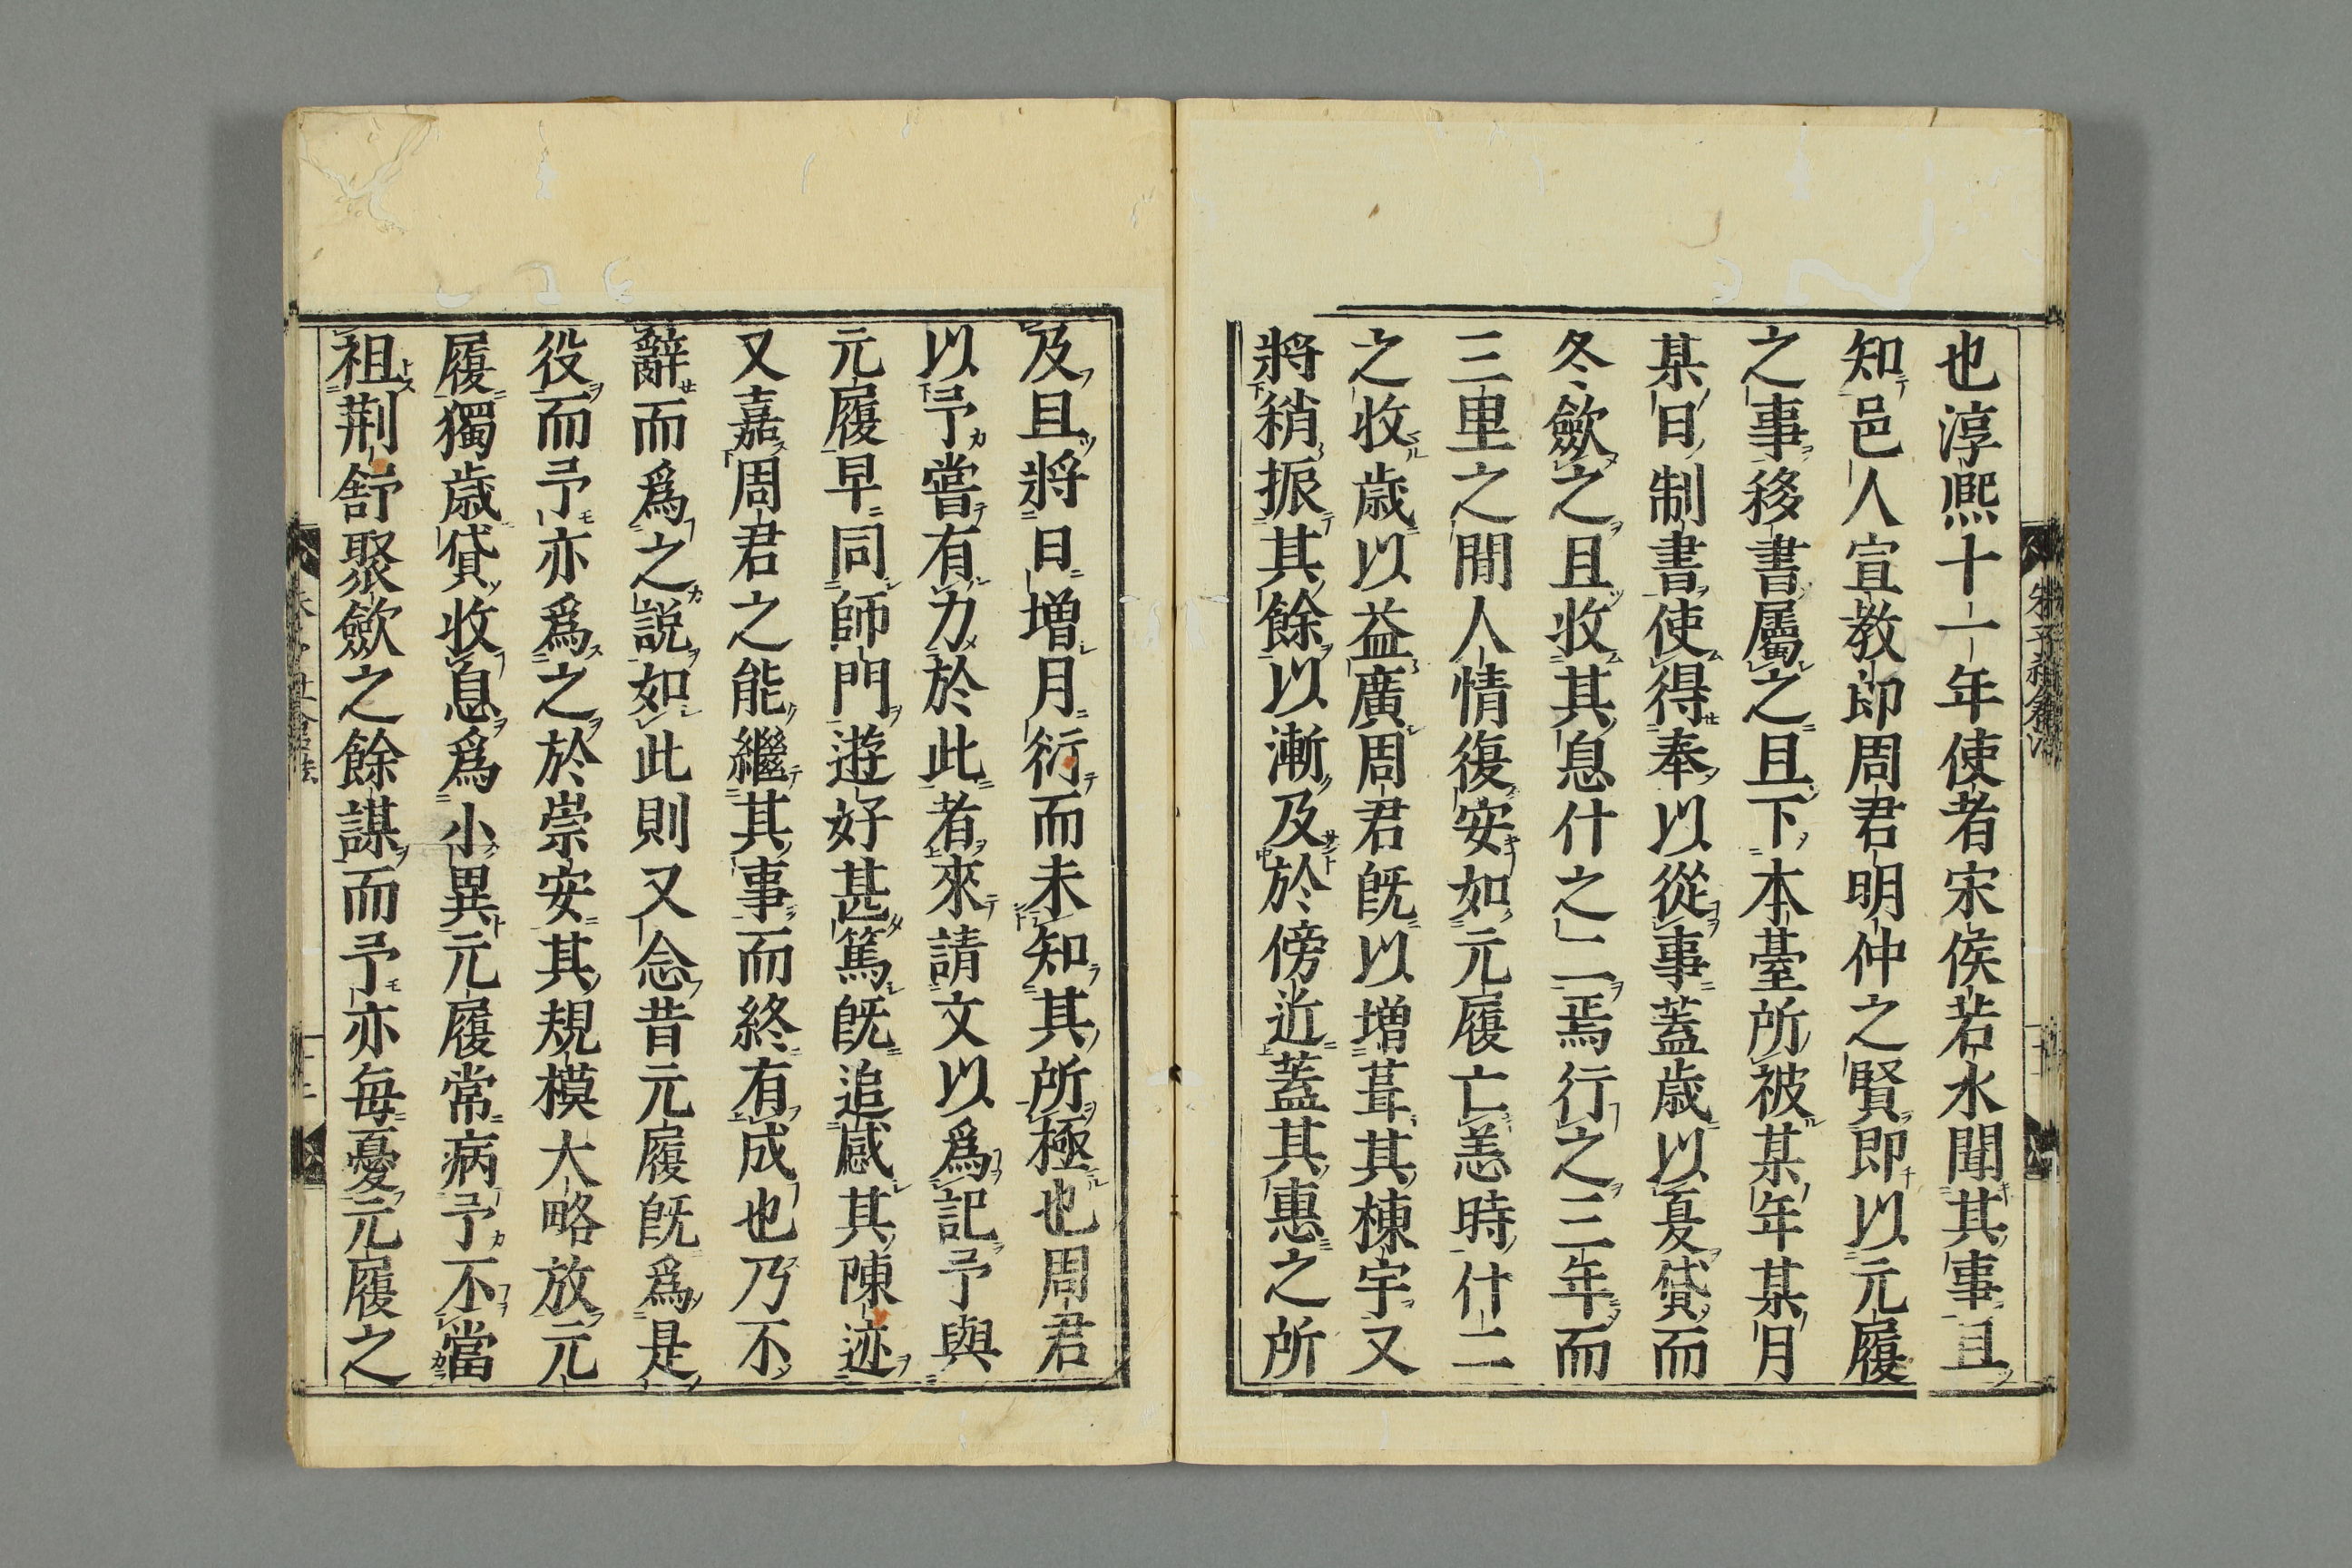 也淳熈十一年使者宋侯若水聞其事且
知邑人宣教郎周君明仲之賢即以元履
之事移書屬之且下本臺所被某年某月
某日制書使得奉以從事蓋歳以夏貸而
冬歛之且收其息什之二焉行之三年而
三里之間人情復安如元履亡恙時什二
之收歳以益廣周君旣以增葺其棟宇又
將稍振其餘以漸及於傍近蓋其惠之所
及且將日增月衍而未知其所極也周君
以予嘗有力於此者來請文以爲記予與
元履早同師門遊好甚篤旣追感其陳迹
又嘉周君之能繼其事而終有成也乃不
辭而爲之說如此則又念昔元履旣爲是
役而予亦爲之於崇安其規模大略放元
履獨歳貸收息爲小異元履常病予不當
祖荆舒聚歛之餘謀而予亦毎憂元履之